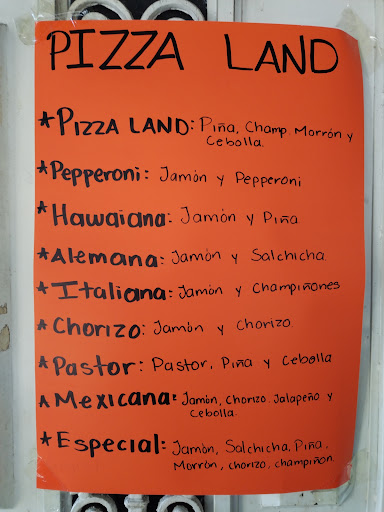 PIZZA LAND
*PIZZA LAND: Piña, Champ. Morrón y
Cebolla.
*Pepperoni: Jamón y Pepperoni
*Hawaiana: Jamón y Piña
*Alemana: Jamón y Salchicha
*Italiana: Jamón y Champiñones
*Chorizo: Jamón y Chorizo
*Pastor: Pastor, Piña y Cebolla
*Mexicana: Jamón, Chorizo. Jalapeño y
Cebolla.
*Especial: Jamón, Salchicha, Piña,
Morrón, chorizo, champiñon.